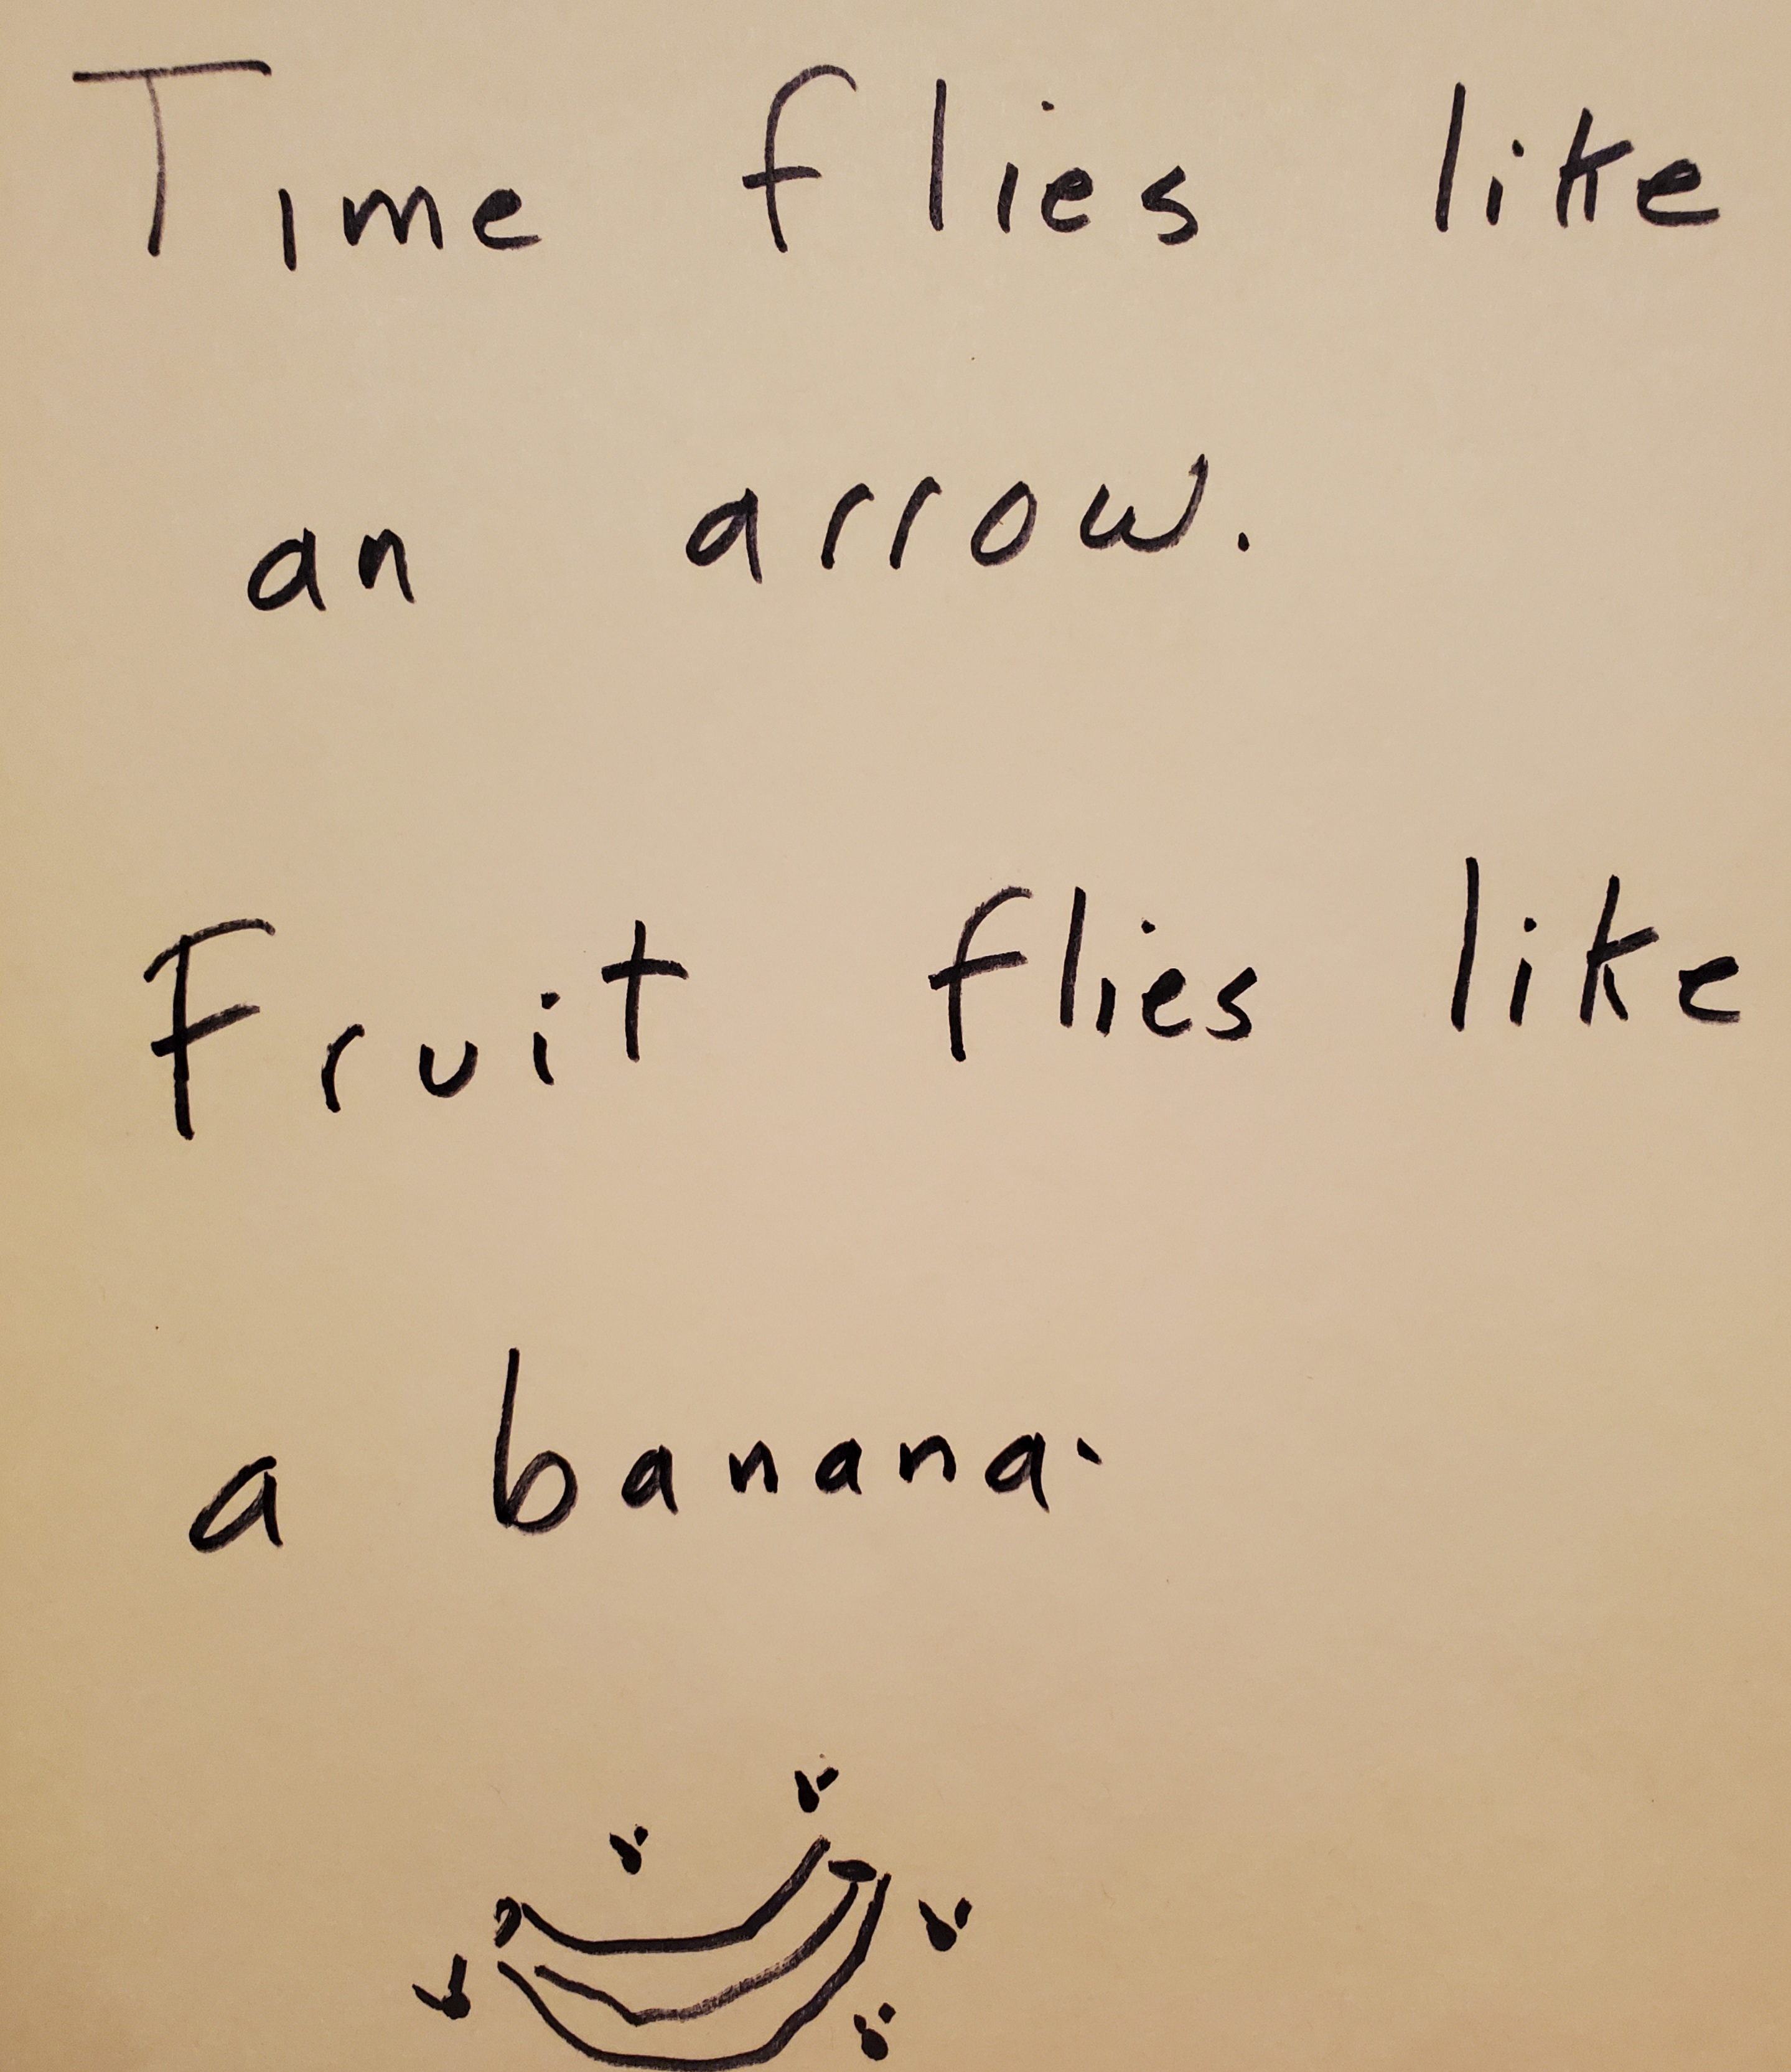 Time flies like
an arrow.
Fruit flies like
a banana.